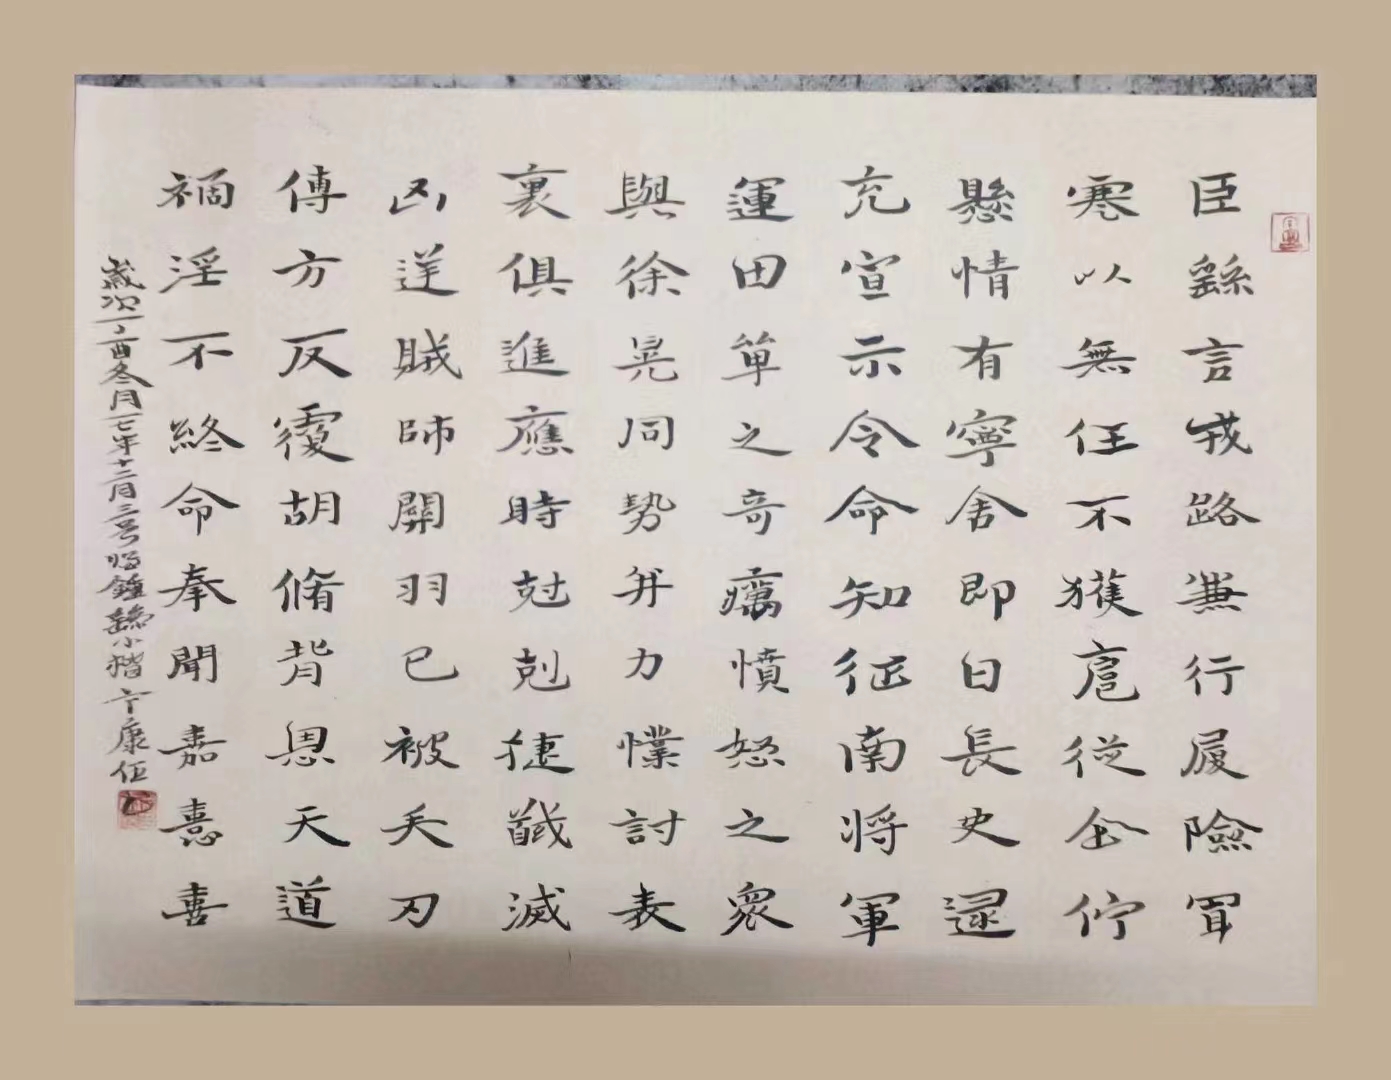 臣繇言戎路兼行履險冒
寒以無任不獲扈從企佇
懸情有寧舍即日長史逯
充宣示令命知征南將軍
運田單之奇癘憤怒之衆
與徐晃同勢并力撲討表
裏俱進應時尅剋捷馘滅
凶逆賊帥關羽已被矢刃
傅方反覆胡脩背恩天道
禍淫不終命奉聞嘉憙喜
歲次丁酉冬月一七年十二月三號臨鍾繇小楷